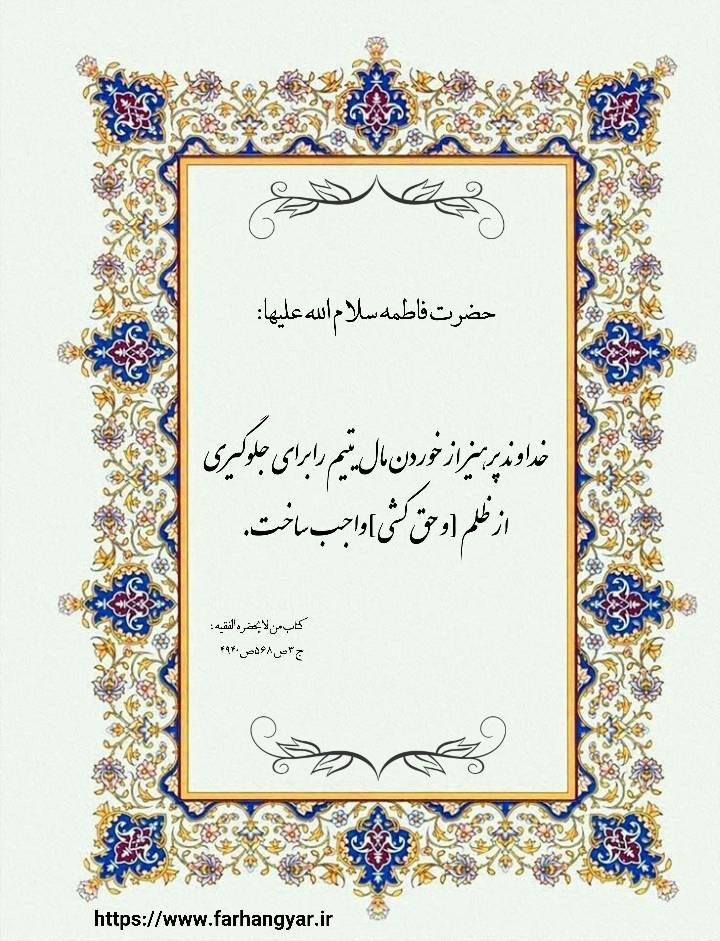 حضرت فاطمه سلام الله علیها:
خداوند پرهیز از خوردن مال یتیم را برای جلوگیری
از ظلم [و حق کشی] واجب ساخت.
کتاب من لا یحضره الفقیه:
ج ۳ص ۵۶۸ص ۴۹۴۰
https://www.farhangyar.ir